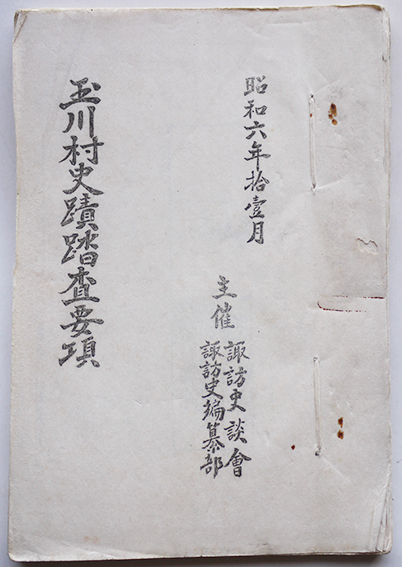 昭和六年拾壹月
主催 諏訪史談會
諏訪史編纂部
玉川村史蹟踏査要項